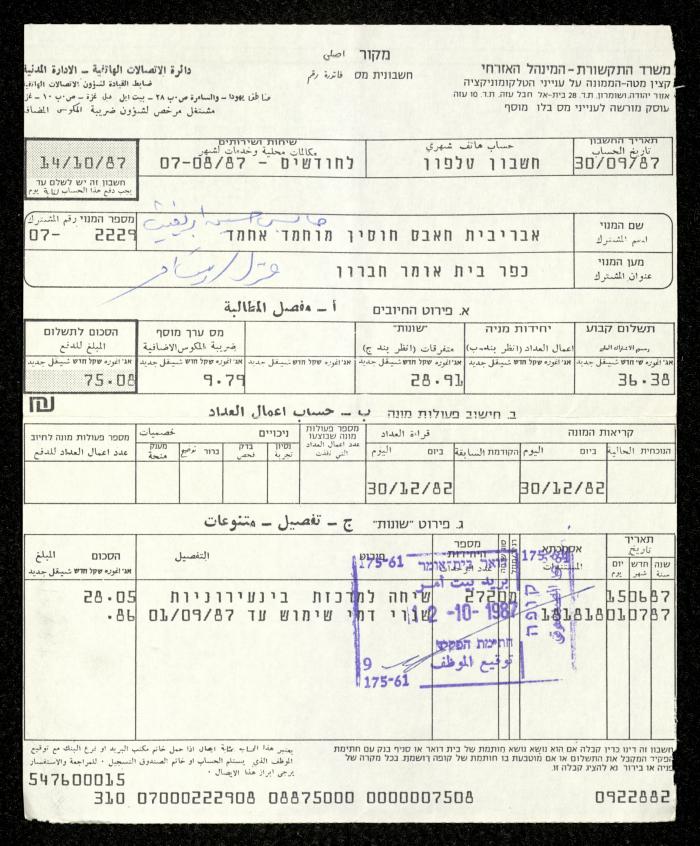 מקור اصلي
משרד התקשורת - המינהל האזרחי
קצין מטה-הממונה על ענייני הטלקומוניקציה
אזור יהודה ושומרון, ת.ד. 28 בית-אל חבל עזה, ת.ד. 10 עזה
עוסק מורשה לענייני מס בלו מוסף
חשבונית מס فاتورة رقم
دائرة الاتصالات الهاتفية - الادارة المدنية
ضابط القيادة لشؤون الاتصالات الهاتفية
مناطق يهودا - والسامرة ص.ب ٢٨ - بيت ايل قطاع غزة - ص.ب ١٠ - غزة
مشتغل مرخص لشؤون ضريبة المكوس المضافة
תאריך החשבון
تاريخ الحساب
30/09/87
حساب هاتف شهري
חשבון טלפון
שיחות ושירותים
مكالمات محلية وخدمات لشهر
לחודשים - 07-08/87
14/10/87
חשבון זה יש לשלם עד
يجب دفع هذا الحساب لغاية يوم
שם המנוי
اسم المشترك
אבריבית חאבס חוסין מוחמד אחמד
מספר המנוי رقم المشترك
07- 2229
מען המנוי
عنوان المشترك
כפר בית אומר חברון
א. פירוט החיובים أ - مفصل المطالبة
תשלום קבוע
36.38
יחידות מניה
اعمال العداد (انظر بند ب)
"שונות"
متفرقات (انظر بند ج)
28.91
מס ערך מוסף
ضريبة المكوس الاضافية
9.79
הסכום לתשלום
المبلغ للدفع
75.08
ב. חישוב פעולות מונה ب - حساب اعمال العداد
קריאות המונה قراءة العداد
הנוכחית الحالية ביום اليوم הקודמת السابقة ביום اليوم
30/12/82 30/12/82
מספר פעולות
מונה שבוצעו
عدد اعمال العداد
التي نفذت
ניכויים خصميات
נסיון
تجربة
בדק
فحص
ברור توضيح
מענק
منحة
מספר פעולות מונה לחיוב
عدد اعمال العداد للدفع
ג. פירוט "שונות" ج - تفصيل - متنوعات
תאריך
تاريخ
שנה חודש יום
سنة شهر يوم
אסמכתא
المستندات
מספר
היחידות
פירוט
التفصيل
הסכום المبلغ
150687 2720 שיחה למרכזת בינעירוניות 28.05
181818 010787 שנוי דמי שימוש עד 01/09/87 .86
175-61
דואר בית אומר
بريد بيت أمر
12-10-1987
חתימת הפקיד
توقيع الموظف
קופה
9
175-61
חשבון זה דינו כדין קבלה אם הוא נושא חותמת של בית דואר או סניף בנק עם חתימת
הפקיד המקבל את התשלום או אם מוטבעת בו חותמת של קופה רושמת. בכל מקרה של
פניה או בירור נא להציג קבלה זו.
يعتبر هذا الحساب بمثابة ايصال اذا حمل خاتم مكتب البريد او فرع البنك مع توقيع
الموظف الذي يستلم الحساب او خاتم الصندوق التسجيل. للمراجعة والاستفسار
يرجى ابراز هذا الايصال.
547600015
310 07000222908 08875000 0000007508 0922882